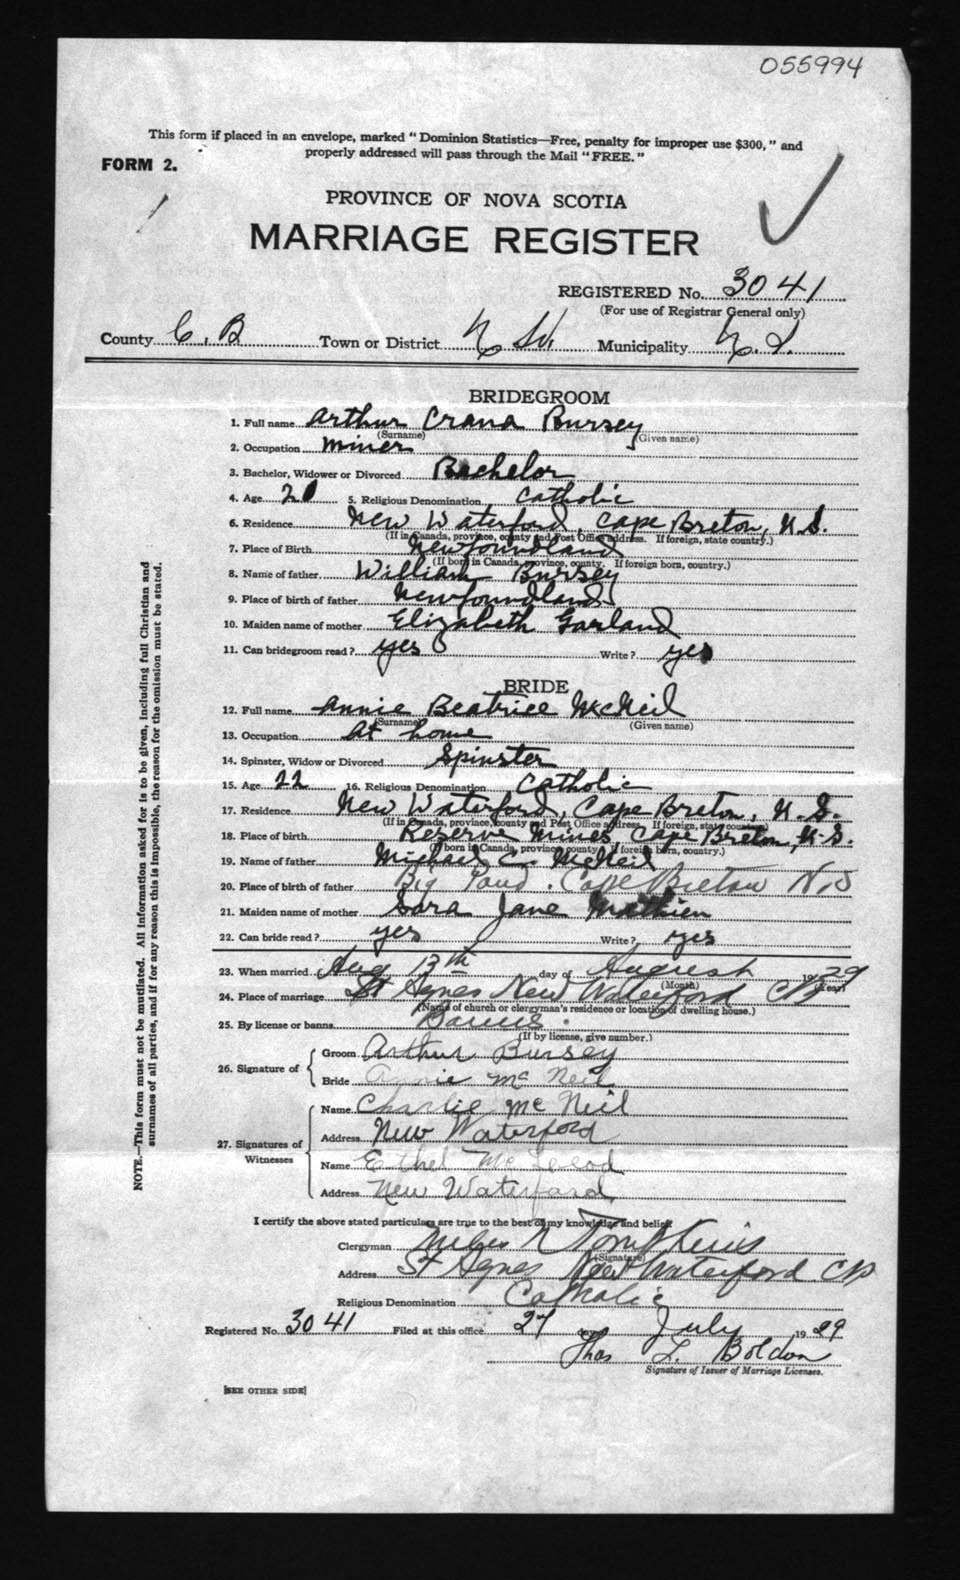 055994
This form if placed in an envelope, marked "Dominion Statistics—Free, penalty for improper use $300," and
properly addressed will pass through the Mail "FREE."
FORM 2.
PROVINCE OF NOVA SCOTIA
MARRIAGE REGISTER
REGISTERED No. 3041
(For use of Registrar General only)
County C. B Town or District Municipality
BRIDEGROOM
1. Full name Arthur Bursey
(Surname) (Given name)
2. Occupation miner
3. Bachelor, Widower or Divorced Bachelor
4. Age 5. Religious Denomination Catholic
6. Residence New Waterford, Cape Breton, N.S.
(If in Canada, province, county and Post Office address. If foreign, state country.)
7. Place of Birth Newfoundland
(If born in Canada, province, county. If foreign born, country.)
8. Name of father William Bursey
9. Place of birth of father Newfoundland
10. Maiden name of mother Elizabeth Garland
11. Can bridegroom read? yes Write? yes
BRIDE
12. Full name Annie Beatrice McNeil
(Surname) (Given name)
13. Occupation At home
14. Spinster, Widow or Divorced Spinster
15. Age 22 16. Religious Denomination Catholic
17. Residence New Waterford, Cape Breton, N.S.
(If in Canada, province, county and Post Office address. If foreign, state country.)
18. Place of birth Reserve Mines Cape Breton, N.S.
(If born in Canada, province, county. If foreign born, country.)
19. Name of father Michael C. McNeil
20. Place of birth of father Big Pond. Cape Breton N.S
21. Maiden name of mother Sara Jane
22. Can bride read? yes Write? yes
23. When married Aug 13th day of August 1929
(Month) (Year)
24. Place of marriage St Agnes New Waterford CB
(Name of church or clergyman's residence or location of dwelling house.)
25. By license or banns Banns.
(If by license, give number.)
26. Signature of
Groom Arthur Bursey
Bride Annie McNeil
27. Signatures of Witnesses
Name Charlie McNeil
Address New Waterford
Name Ethel McLeod
Address New Waterford
I certify the above stated particulars are true to the best of my knowledge and belief
Clergyman Tompkins
(Signature)
Address St Agnes New Waterford CB
Religious Denomination Catholic
Registered No. 3041 Filed at this office 27 day July 1929
Thos L. Boldon
Signature of Issuer of Marriage Licenses.
[SEE OTHER SIDE]
NOTE.—This form must not be mutilated. All information asked for is to be given, including full Christian and
surnames of all parties, and if for any reason this is impossible, the reason for the omission must be stated.